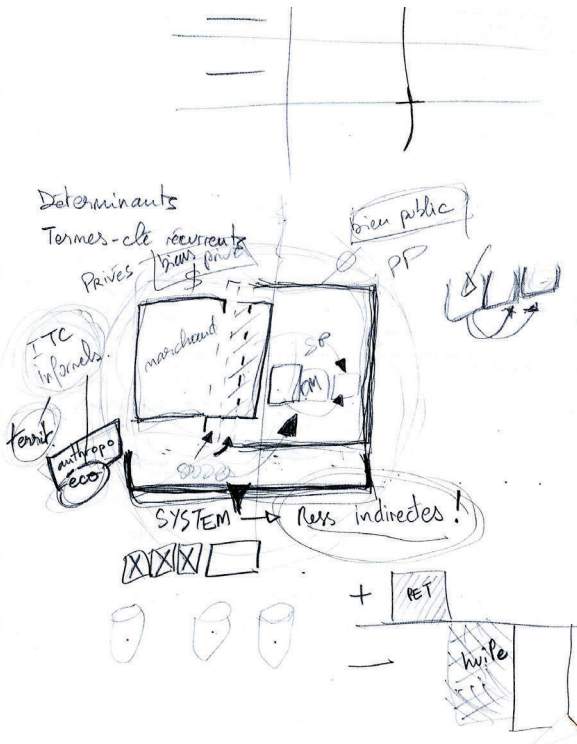 Déterminants
Termes-clé récurrents
bien public
Privés - biens privé
$
PP
marchand
ITC
informels.
SP
territ.
anthropo
éco
SYSTEM → Ress indirectes !
X X X
+ PET
- huile